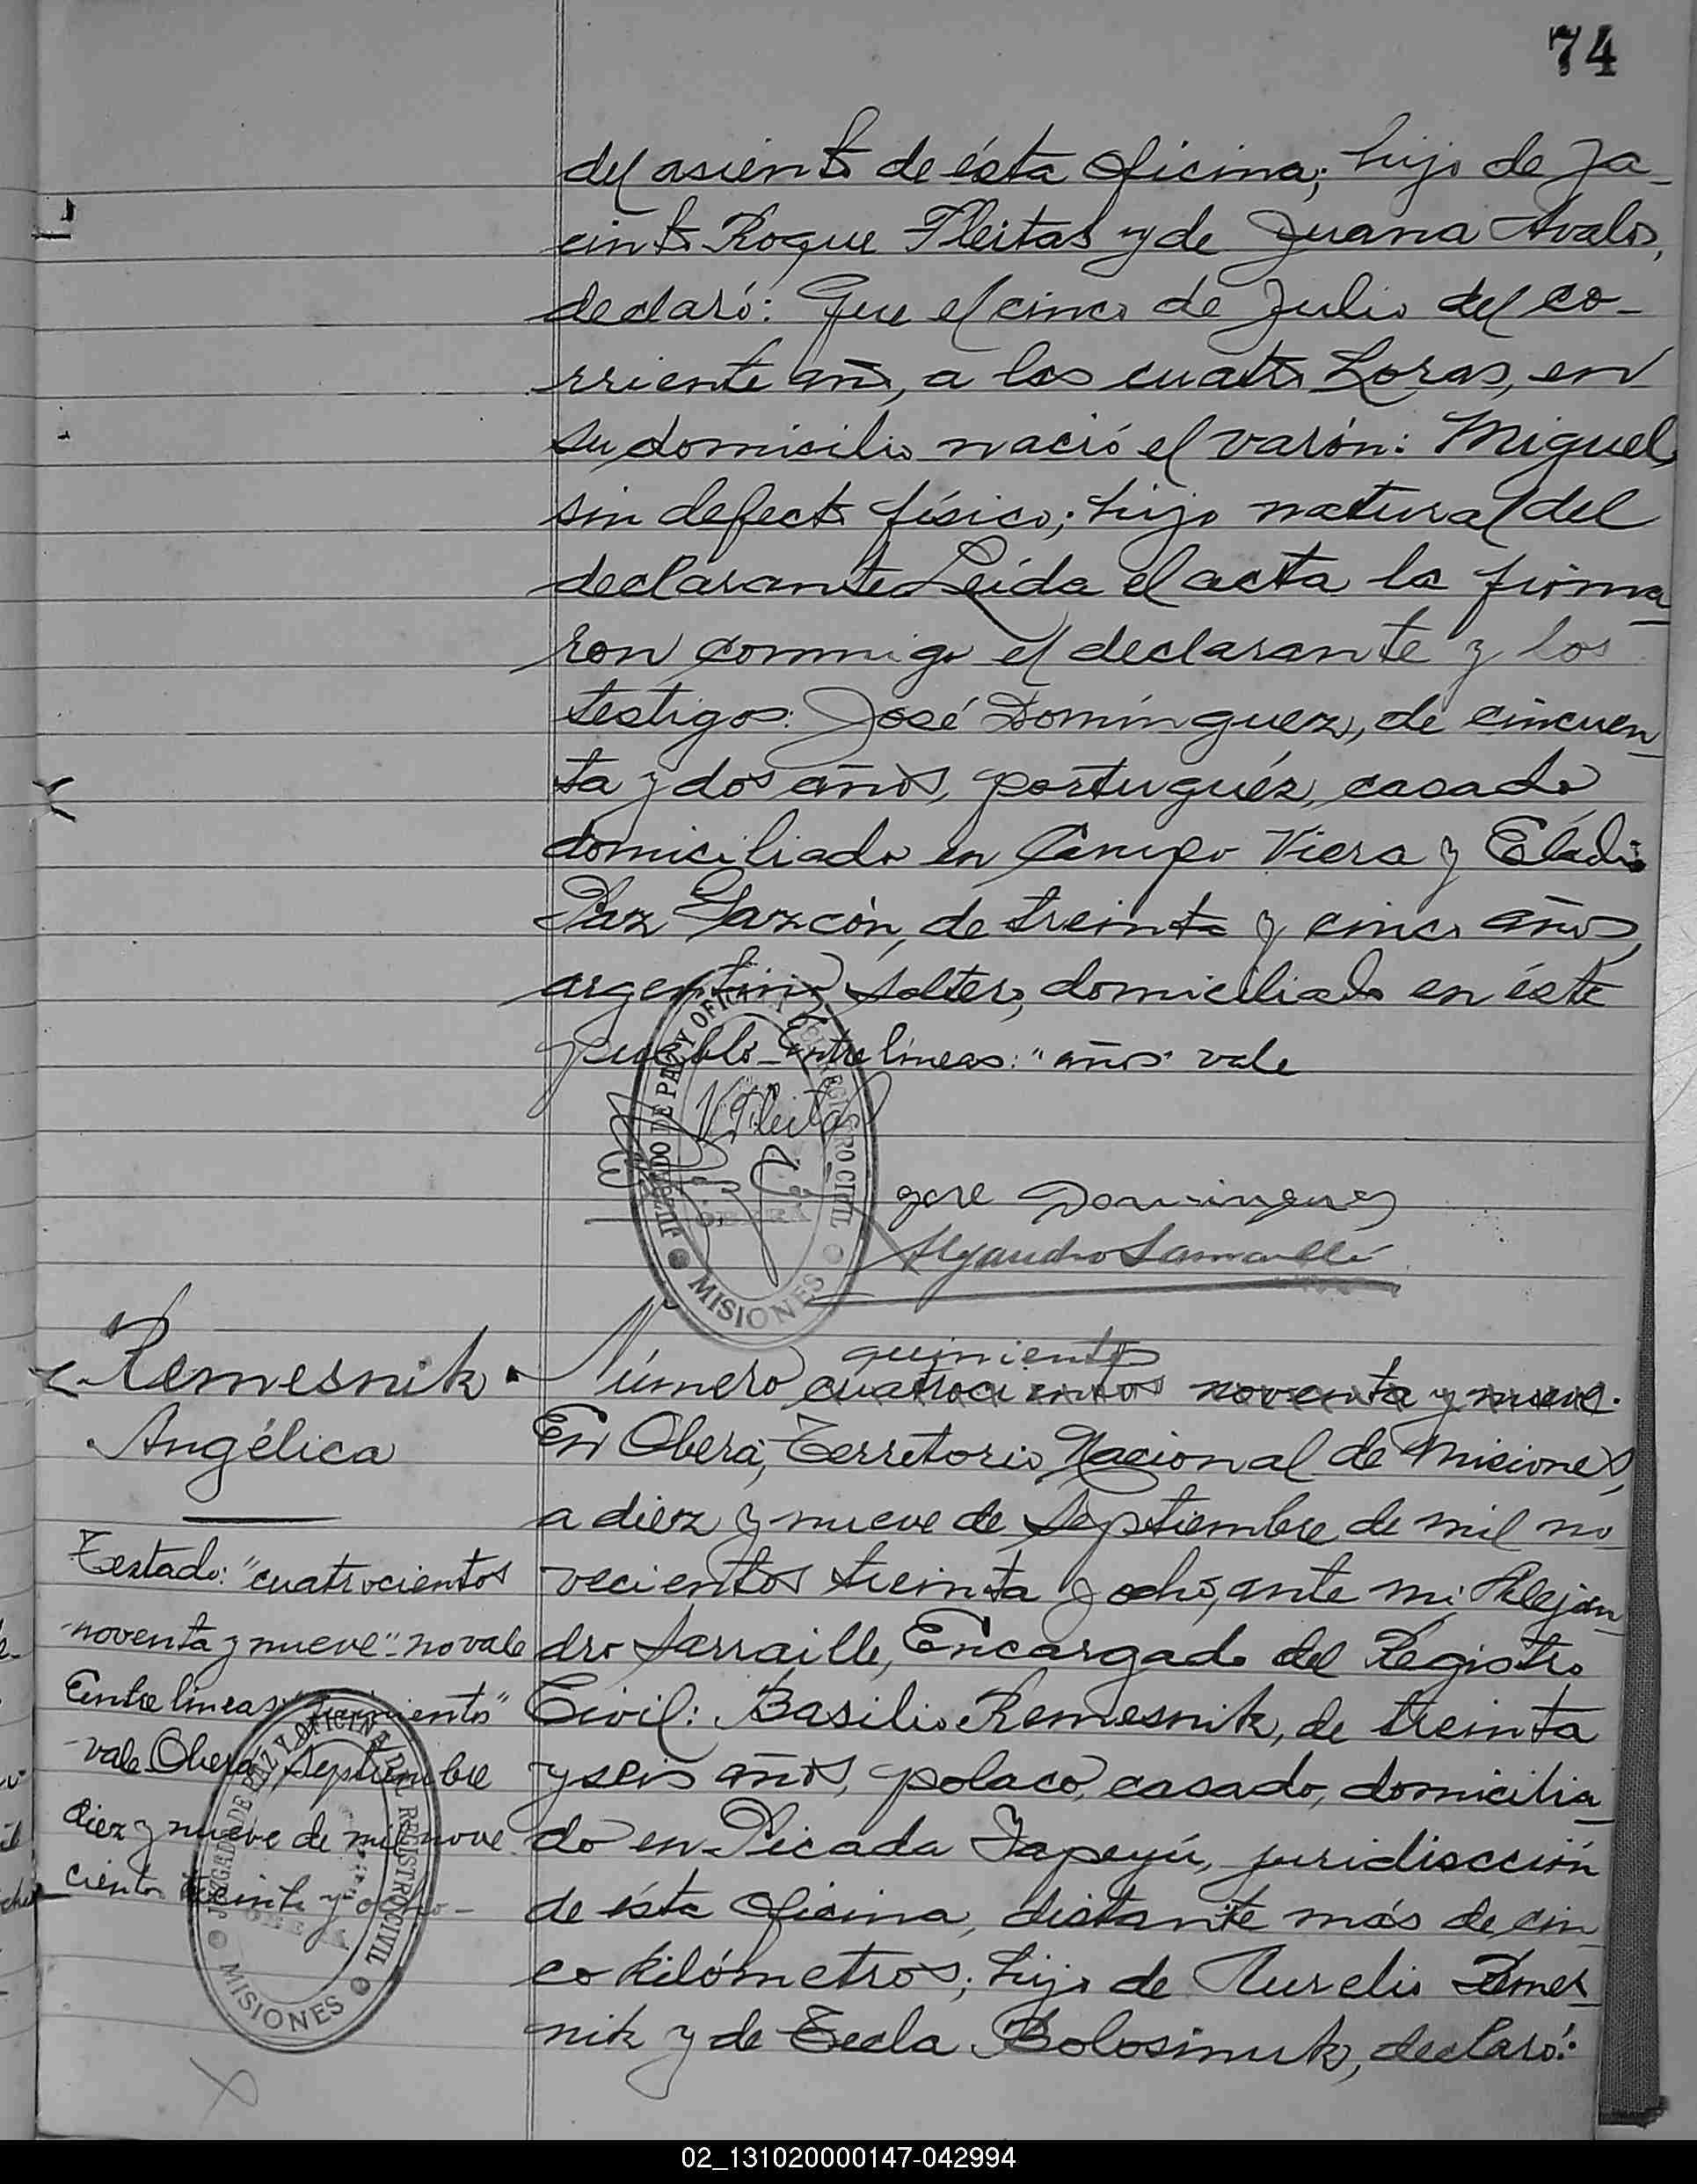 74
del asiento de ésta Oficina; hijo de Ja-
cinto Roque Fleitas y de Juana Avalos,
declaró: Que el cinco de Julio del co-
rriente año, a las cuatro horas, en
su domicilio nació el varón: Miguel,
sin defecto físico; hijo natural del
declarante Leída el acta la firma-
ron conmigo el declarante y los
testigos: José Domínguez, de cincuen-
ta y dos años, portuguéz, casado
domiciliado en Campo Viera y Eládio
Paz Gazcón, de treinta y cinco años,
argentino soltero, domiciliado en éste
pueblo_Entre líneas: "años" vale
V Fleita
JUZGADO DE PAZ Y OFICINA DEL REGISTRO CIVIL
OBERA
MISIONES
jose Dominguez
Remesnik
Angélica
Testado: "cuatrocientos
noventa y nueve" no vale
Entre líneas: "quinientos"
vale Oberá, Septiembre
diez y nueve de mil nove
cientos treinta y ocho-
JUZGADO DE PAZ Y OFICINA DEL REGISTRO CIVIL
OBERA
MISIONES
quinientos
Número cuatrocientos noventa y nueve.
En Oberá, Territorio Nacional de Misiones,
a diez y nueve de Septiembre de mil no-
vecientos treinta y ocho, ante mí, Alejan-
dro Sarraille, Encargado del Registro
Civil: Basilio Remesnik, de treinta
y seis años, polaco, casado, domicilia-
do en Picada Yapeyú, juridiscción
de ésta Oficina, distante más de cin-
co kilómetros; hijo de Aurelio Remes-
nik y de Tecla Bolosinuk, declaró:
02_131020000147-042994